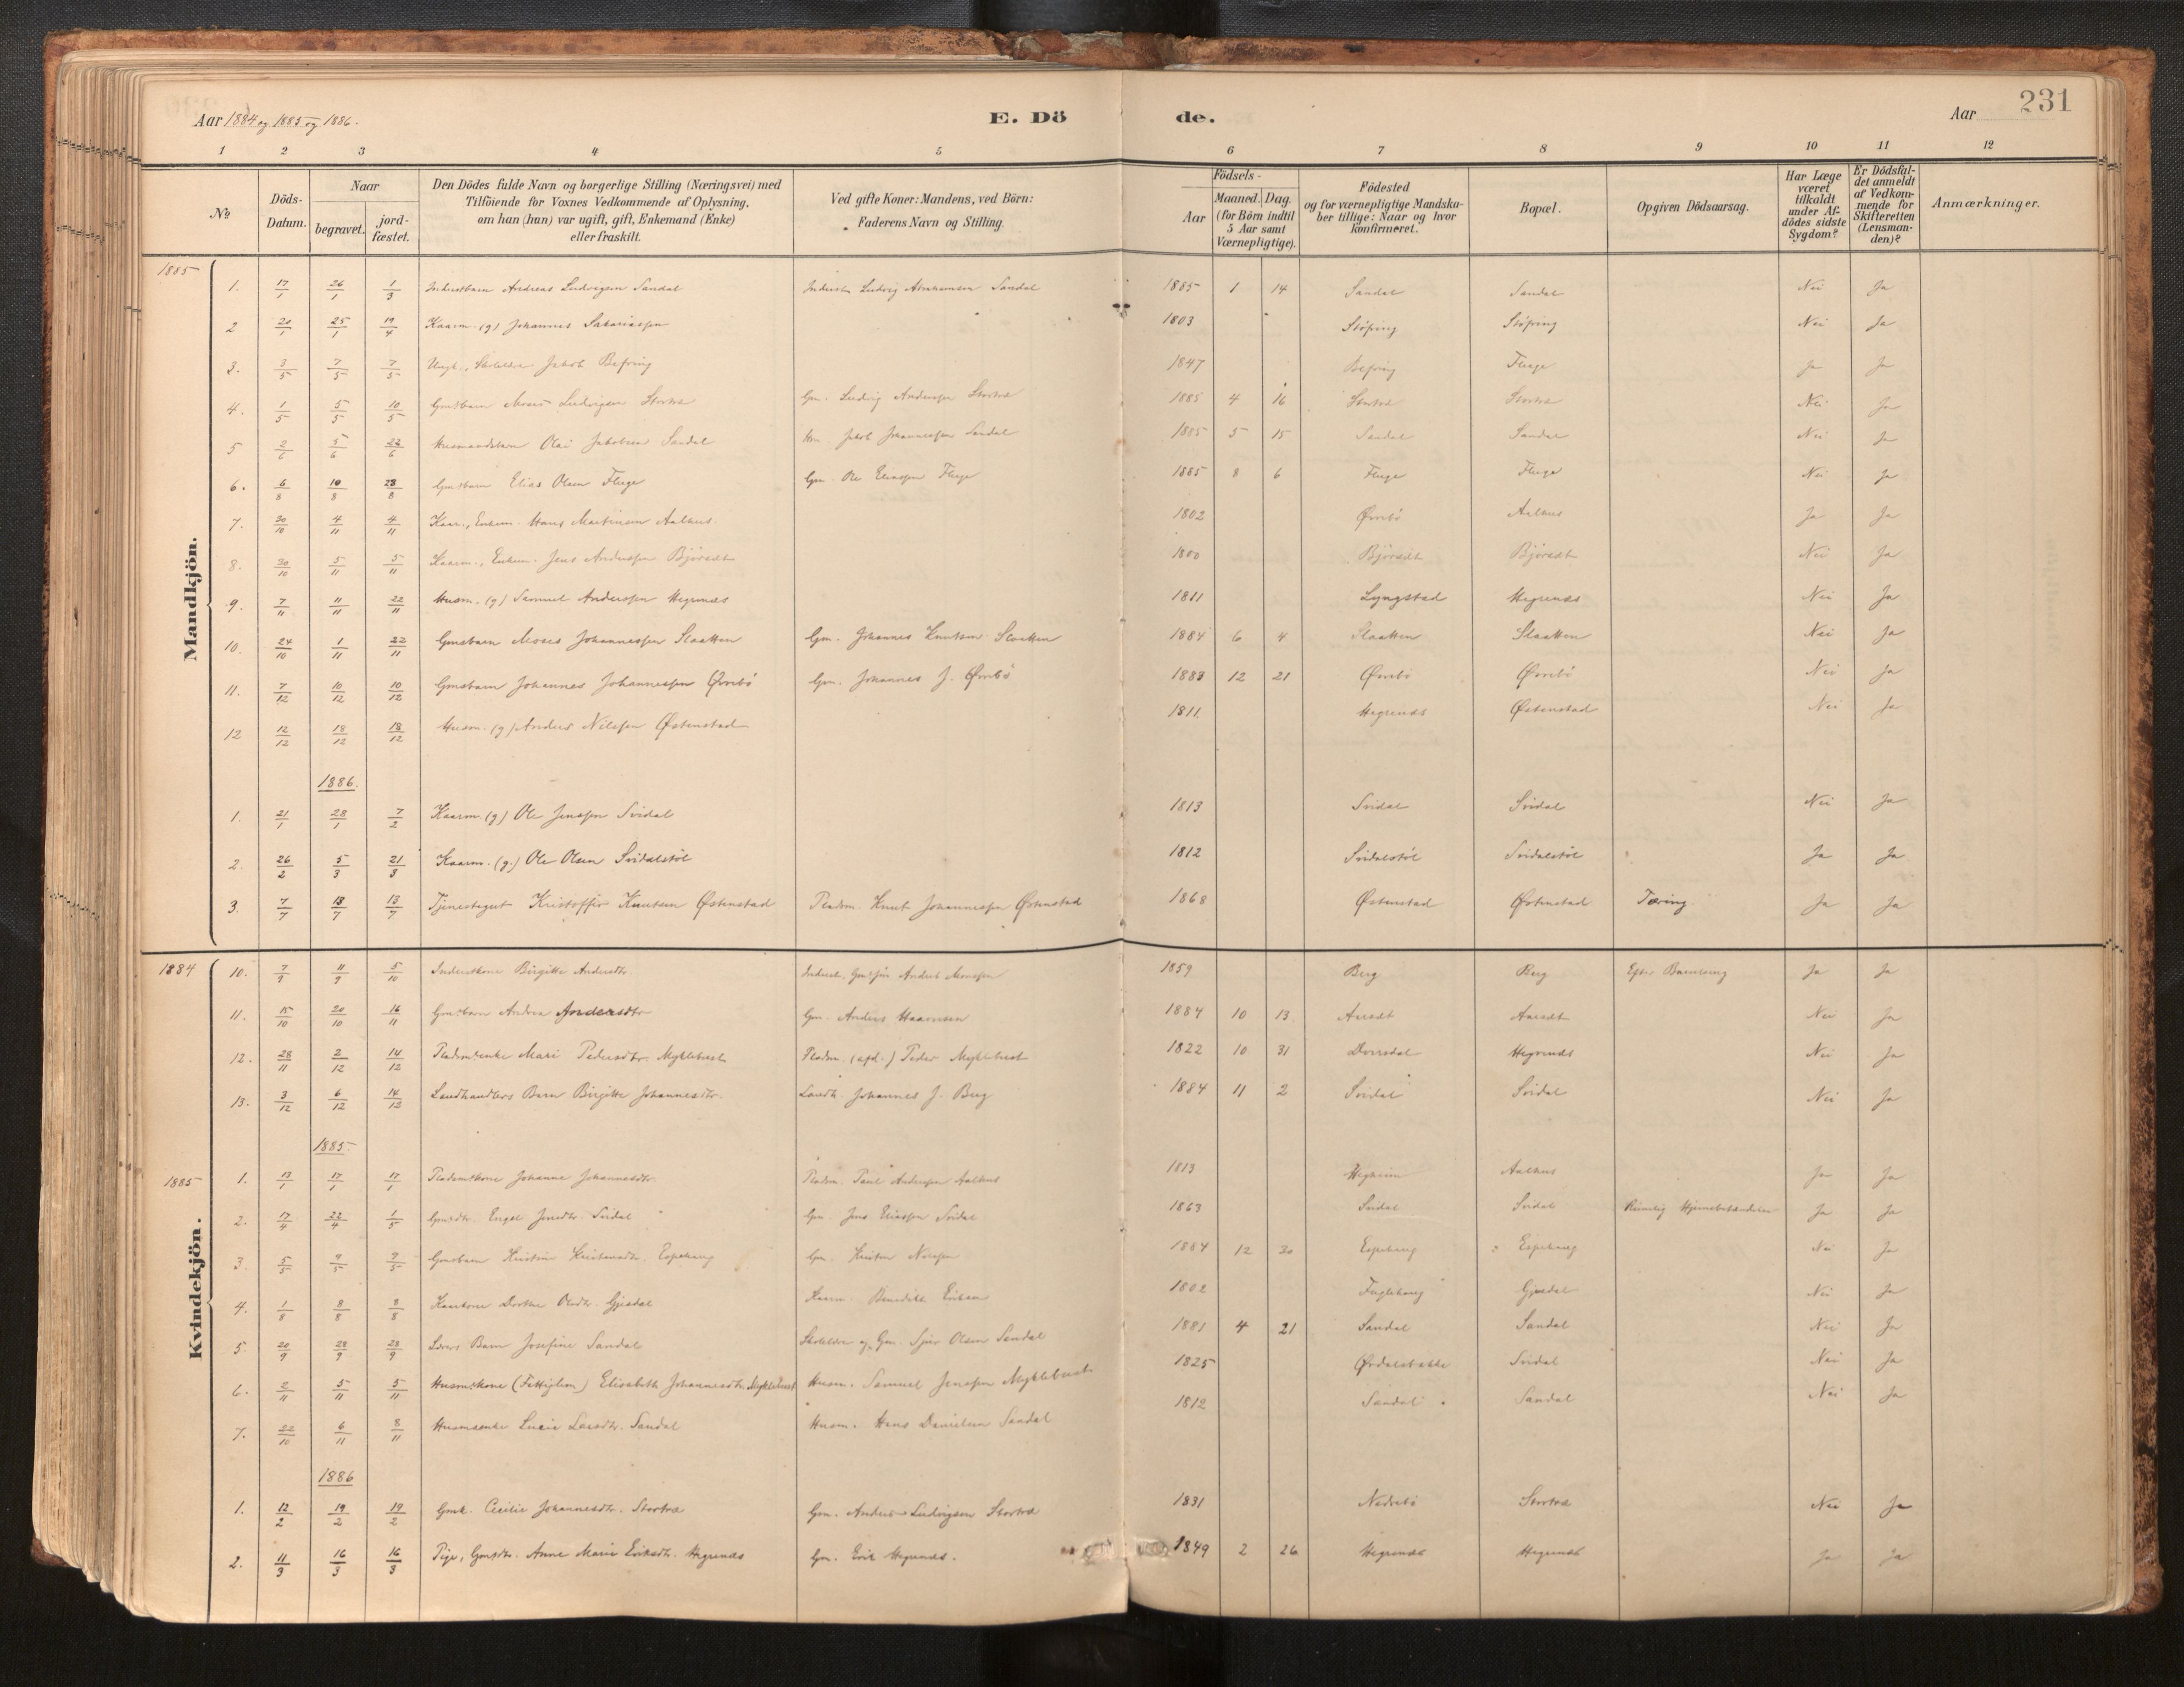 Aar 1884 og 1885 og 1886.
E. Dö
de.
Aar
231
1 2 3 4 5 6 7 8 9 10 11 12
No
Döds-Datum.
Naar
begravet.
jord-fæstet.
Den Dödes fulde Navn og borgerlige Stilling (Næringsvei) med
Tilföiende for Voxnes Vedkommende af Oplysning,
om han (hun) var ugift, gift, Enkemand (Enke)
eller fraskilt.
Ved gifte Koner: Mandens, ved Börn:
Faderens Navn og Stilling.
Födsels-
Aar
Maaned. Dag.
(for Börn indtil
5 Aar samt
Værnepligtige).
Födested
og for værnepligtige Mandska-
ber tillige: Naar og hvor
konfirmeret.
Bopæl.
Opgiven Dödsaarsag.
Har Læge
været
tilkaldt
under Af-
dödes sidste
Sygdom?
Er Dödsfal-
det anmeldt
af Vedkom-
mende for
Skifteretten
(Lensman-
den)?
Anmærkninger.
Mandkjön.
1885
1. 17/1 26/1 1/3 Inderstbarn Andreas Ludvigsen Sandal Inderst Ludvig Abrahamsen Sandal 1885 1 14 Sandal Sandal Nei Ja
2 21/1 25/1 19/4 Kaarm. (g) Johannes Sakariassen 1803 Støfring Støfring Nei Ja
3. 3/5 7/5 7/5 Ungk., Jakob Befring 1847 Befring Fluge Ja Ja
4. 1/5 5/5 10/5 Gmsbarn Moses Ludvigsen Stortræ Gm. Ludvig Anderssen Stortræ 1885 4 16 Stortræ Stortræ Nei Ja
5 2/6 5/6 22/6 Husmandsbarn Olai Jakobsen Sandal Hm. Jakob Johannessen Sandal 1885 5 15 Sandal Sandal Nei Ja
6. 6/8 10/8 23/8 Gmsbarn Elias Olsen Fluge Gm. Ole Eliassen Fluge 1885 8 6 Fluge Fluge Nei Ja
7. 30/10 4/11 4/11 Kaar., Enkem. Hans Martinsen Aalhus. 1802 Ørrebø Aalhus Ja Ja
8. 30/10 5/11 5/11 Kaarm., Enkem. Jens Anderssen Bjørsæt 1800 Bjørsæt Bjørsæt Nei Ja
9. 7/11 11/11 22/11 Husm. (g) Samuel Anderssen Hegrenæs 1811 Lyngstad Hegrenæs Nei Ja
10. 24/10 1/11 22/11 Gmsbarn Moses Johannessen Slaatten Gm. Johannes Knutsen Slaatten 1884 6 4 Slaatten Slaatten Nei Ja
11. 7/12 10/12 10/12 Gmsbarn Johannes Johannessen Ørrebø Gm. Johannes J. Ørrebø 1883 12 21 Ørrebø Ørrebø Nei Ja
12 12/12 18/12 18/12 Husm. (g) Anders Nilssen Østenstad 1811. Hegrenæs Østenstad Nei Ja
1886.
1. 21/1 28/1 7/2 Kaarm. (g) Ole Jenssen Svidal 1813 Svidal Svidal Nei Ja
2. 26/2 5/3 21/3 Kaarm. (g.) Ole Olsen Svidalstøl 1812 Svidalstøl Svidalstøl Ja Ja
3. 7/7 13/7 13/7 Tjenestegut Kristoffer Knutsen Østenstad Pladsm. Knut Johannessen Østenstad 1868 Østenstad Østenstad Tæring Ja Ja
Kvindekjön.
1884
10. 7/9 11/9 5/10 Inderstkone Birgitte Andersdtr. Inderst, Anders Monssen 1859 Berg Berg Efter Barnseng Ja Ja
11. 15/10 20/10 16/11 Gmsbarn Andrea Andersdtr Gm. Anders 1884 10 13 Aarsæt Aarsæt Nei Ja
12. 28/11 2/12 14/12 Pladsmsenke Mari Pedersdtr. Myklebust Pladsm. (afd.) Peder Myklebust 1822 10 31 Dvergsdal Hegrenæs Nei Ja
13. 3/12 6/12 14/12 Landhandlers Barn Birgitte Johannesdtr. Landh. Johannes J. Berg 1884 11 2 Svidal Svidal Nei Ja
1885.
1885
1. 13/1 17/1 17/1 Pladsmskone Johanne Johannesdtr. Pladsm. Paul Anderssen Aalhus 1813 Hegheim Aalhus Ja Ja
2. 17/4 22/4 1/5 Gmsdtr. Engel Jensdtr. Svidal Gm. Jens Eliassen Svidal 1863 Svidal Svidal Hjernebetændelse Ja Ja
3. 5/5 7/5 7/5 Gmsbarn Kristine Kristensdtr. Espehaug Gm. Kristen Nilssen 1884 12 30 Espehaug Espehaug Nei Ja
4. 1/8 8/8 8/8 Kaarkone Dorthe Olsdtr. Gjesdal Kaarm. Benedikt Eriksen 1802 Fuglehaug Gjesdal Nei Ja
5 20/9 28/9 28/9 Lærers Barn Josefine Sandal Skolelærer og Gm. Sjur Olsen Sandal 1881 4 21 Sandal Sandal Nei Ja
6. 2/11 5/11 5/11 Husmskone (Fattiglem) Elisabeth Johannesdtr. Myklebust Husm. Samuel Jenssen Myklebust 1825 Ørdalsbakke Svidal Nei Ja
7. 22/10 6/11 8/11 Husmsenke Lucie Larsdtr. Sandal Husm. Hans Danielsen Sandal 1812 Sandal Sandal Nei Ja
1886
1. 12/2 19/2 19/2 Gmk. Cecilie Johannesdtr. Stortræ Gm. Anders Ludvigsen Stortræ 1831 Nedrebø Stortræ Nei Ja
2. 11/3 16/3 16/3 Pige, Gmsdtr. Anne Marie Eriksdtr. Hegrenæs Gm. Erik Hegrenæs. 1849 2 26 Hegrenæs Hegrenæs Ja Ja